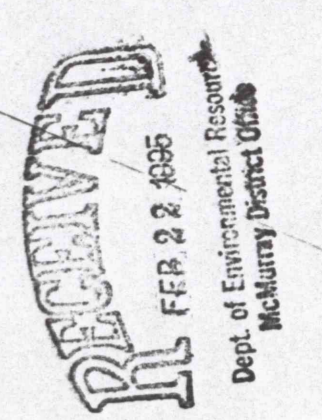 RECEIVED
FEB 22 1995
Dept. of Environmental Resources
McMurray District Office